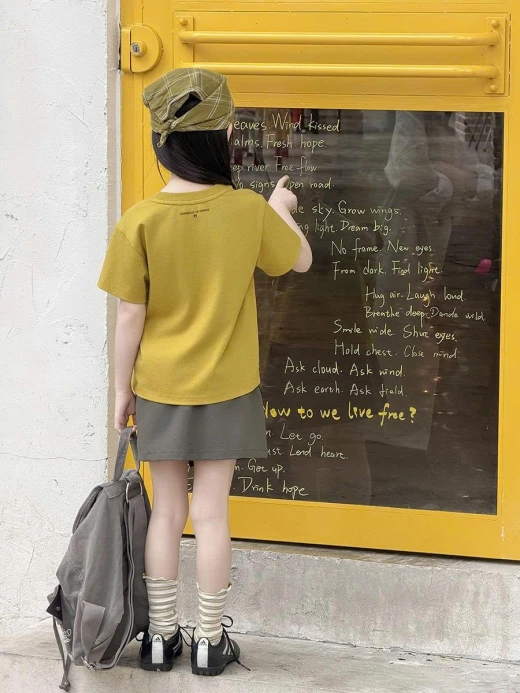 eaves. Wind kissed.
alms. Fresh hope.
ep river. Free flow
o signs. Open road.
de sky. Grow wings.
ng light. Dream big.
No frame. New eyes.
From dark. Find light.
Hug air. Laugh loud.
Breathe deep. Dande wild.
Smile wide. Shut eyes.
Hold chest. Close mind.
Ask cloud. Ask wind.
Ask earth. Ask field.
How to we live free?
n. Let go.
ust. Lend heart.
n. Get up.
. Drink hope